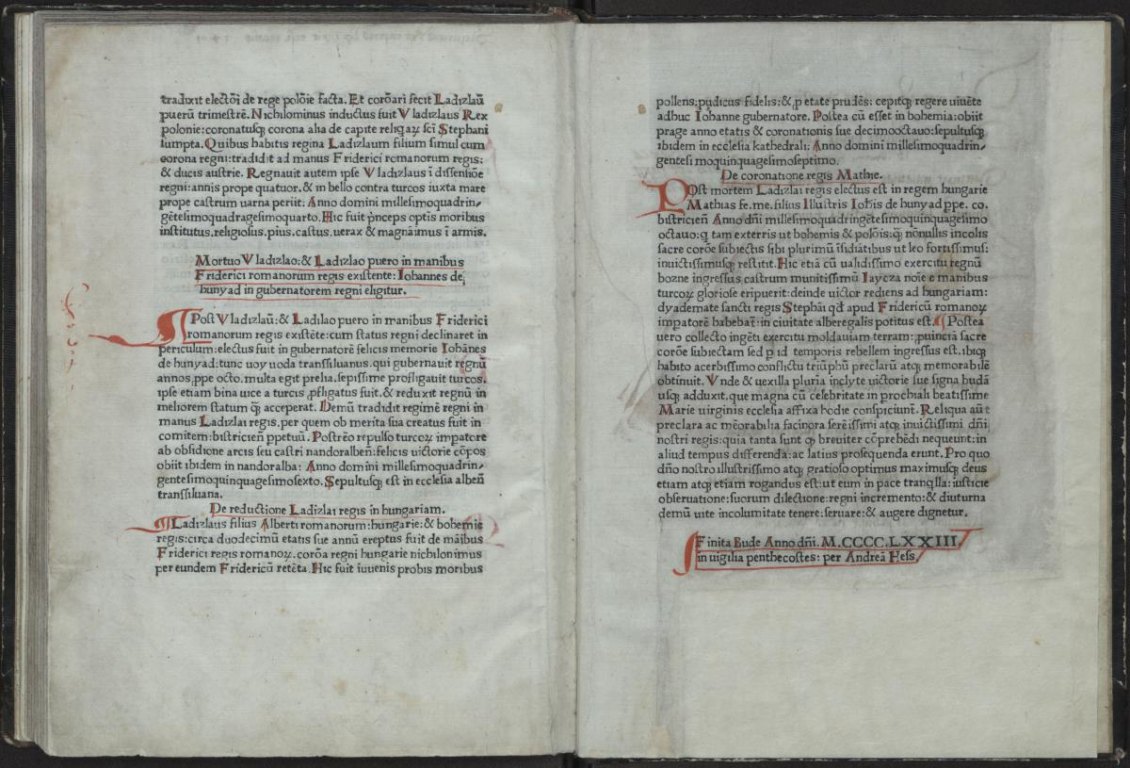 tradixit electõi de rege polõie facta. Et corõari fecit Ladizlaũ
puerũ trimestrẽ. Nichilominus inductus fuit Vladizlaus Rex
polonie: coronatusq; corona alia de capite reliqaꝝ sci Stephani
sumpta. Quibus habitis regina Ladizlaum filium simul cum
corona regni: tradidit ad manus Friderici romanorum regis:
& ducis austrie. Regnauit autem ipse Vladizlaus ĩ dissensiõe
regni: annis prope quatuor. & in bello contra turcos iuxta mare
prope castrum uarna periit. Anno domini millesimoquadrin-
gẽtesimoquadragesimoquarto. Hic fuit p̃nceps optĩs moribus
institutus. religiosus. pius. castus. uerax & magnãimus ĩ armis.
Mortuo Vladizlao: & Ladizlao puero in manibus
Friderici romanorum regis existente: Iohannes de
huny ad in gubernatorem regni eligitur.
Post Vladizlaũ: & Ladilao puero in manibus Friderici
romanorum regis existẽte: cum status regni declinaret in
periculum: electus fuit in gubernatorẽ felicis memorie Iohãnes
de huny ad: tunc uoy uoda transsiluanus. qui gubernauit regnũ
annos ꝓpe octo. multa egit prelia. sepissime profligauit turcos.
ipse etiam bina uice a turcis ꝓfligatus fuit. & reduxit regnũ in
meliorem statum q̃ acceperat. Demũ tradidit regimẽ regni in
manus Ladizlai regis. per quem ob merita sua creatus fuit in
comitem: bistricieñ ppetuũ. Postrẽo repulso turcoꝝ impatore
ab obsidione arcis seu castri nandoralbeñ: felicis uictorie cõpos
obiit ibidem in nandoralba: Anno domini millesimoquadrin-
gentesimoquinquagesimosexto. Sepultusq; est in ecclesia albeñ
transsiluana.
De reductione Ladizlai regis in hungariam.
Ladizlaus filius Alberti romanorum: hungarie: & bohemie
regis: circa duodecimũ etatis sue annũ ereptus fuit de mãibus
Friderici regis romanoꝝ. corõa regni hungarie nichilonimus
per eundem Fridericũ retẽta. Hic fuit iuuenis probis moribus
pollens: pudicus fidelis: & ꝓ etate prudẽs: cepitq; regere uiuẽte
adhuc Iohanne gubernatore. Postea cũ esset in bohemia: obiit
prage anno etatis & coronationis sue decimooctauo: sepultusq;
ibidem in ecclesia kathedrali: Anno domini millesimoquadrin-
gentesimoquinquagesimoseptimo.
De coronatione regis Mathie.
Post mortem Ladizlai regis electus est in regem hungarie
Mathias fe. me. filius Illustris Iohis de huny ad ppe. co.
bistricieñ Anno dñi millesimoquadringẽtesimoquinquagesimo
octauo: q tam exterris ut bohemis & polõis: q̃ nõnullis incolis
sacre corõe subiectis sibi plurimũ ĩsidiãtibus ut leo fortissimus:
inuictissimusq; restitit. Hic etiã cũ ualidissimo exercitu regnũ
bozne ingressus castrum munitissimũ Iaycza noĩe e manibus
turcoꝝ gloriose eripuerit: deinde uictor rediens ad hungariam:
dyademate sancti regis Stephãi qd̃ apud Fridericũ romanoꝝ
impatorẽ habebat̃: in ciuitate alberegalis potitus est. Postea
uero collecto ingẽti exercitu moldauiam terram: ꝓuinciã sacre
corõe subiectam sed p id temporis rebellem ingressus est. ibiq;
habito acerbissimo conflictu triũphũ preclarũ atq; memorabilẽ
obtinuit. Vnde & uexilla pluria inclyte uictorie sue signa budã
usq; adduxit. que magna cũ celebritate in prochiali beatissime
Marie uirginis ecclesia affixa hodie conspiciunt̃. Reliqua aũt
preclara ac mẽorabilia facinora serẽissimi atq; inuictissimi dñi
nostri regis: quia tanta sunt q; breuiter cõprehẽdi nequeunt: in
aliud tempus differenda: ac latius prosequenda erunt. Pro quo
dño nostro illustrissimo atq; gratioso optimus maximusq; deus
etiam atq; etiam rogandus est: ut eum in pace tranq̃lla: iusticie
obseruatione: suorum dilectione: regni incremento: & diuturna
demũ uite incolumitate tenere: seruare: & augere dignetur.
Finita Bude Anno dñi. M.CCCC.LXXIII.
in uigilia penthecostes: per Andreã Hess.